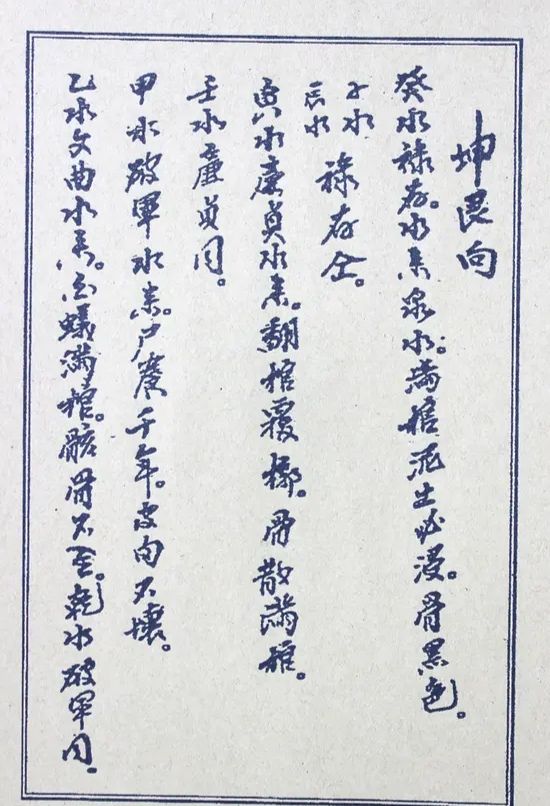 坤艮向
癸水禄存。水来泉水。满棺泥土必浸。骨黑色。
子水
辰水 禄存仝。
寅水廉貞水来。翻棺覆槨。骨散满棺。
壬水廉貞同。
甲水破軍水来。尸養千年。皮肉不壊。
乙水文曲水来。白蟻满棺。骸骨不全。乾水破軍同。